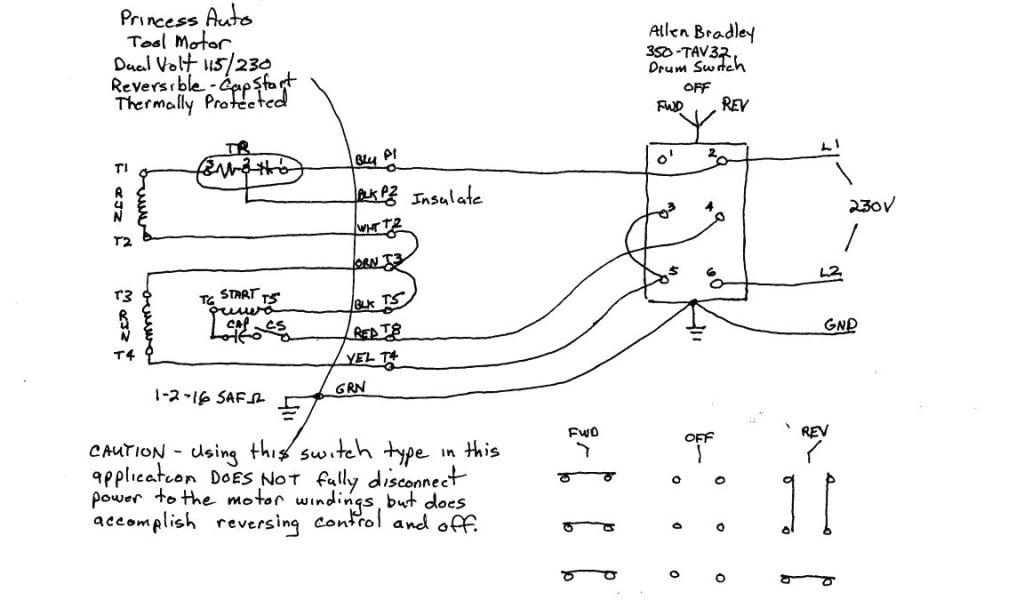 Princess Auto
Tool Motor
Dual Volt 115/230
Reversible - Cap Start
Thermally Protected
Allen Bradley
350-TAV32
Drum Switch
OFF
FWD REV
TR
T1 3 2 1 BLU P1
BLK P2 Insulate
RUN
T2 WHT T2
ORN T3
T3
RUN
T4
T6 START T5 BLK T5
CAP CS RED T8
YEL T4
GRN
1 2 L1
3 4 230V
5 6 L2
GND
1-2-16 SAFΩ
CAUTION - Using this switch type in this
application DOES NOT fully disconnect
power to the motor windings but does
accomplish reversing control and off.
FWD OFF REV